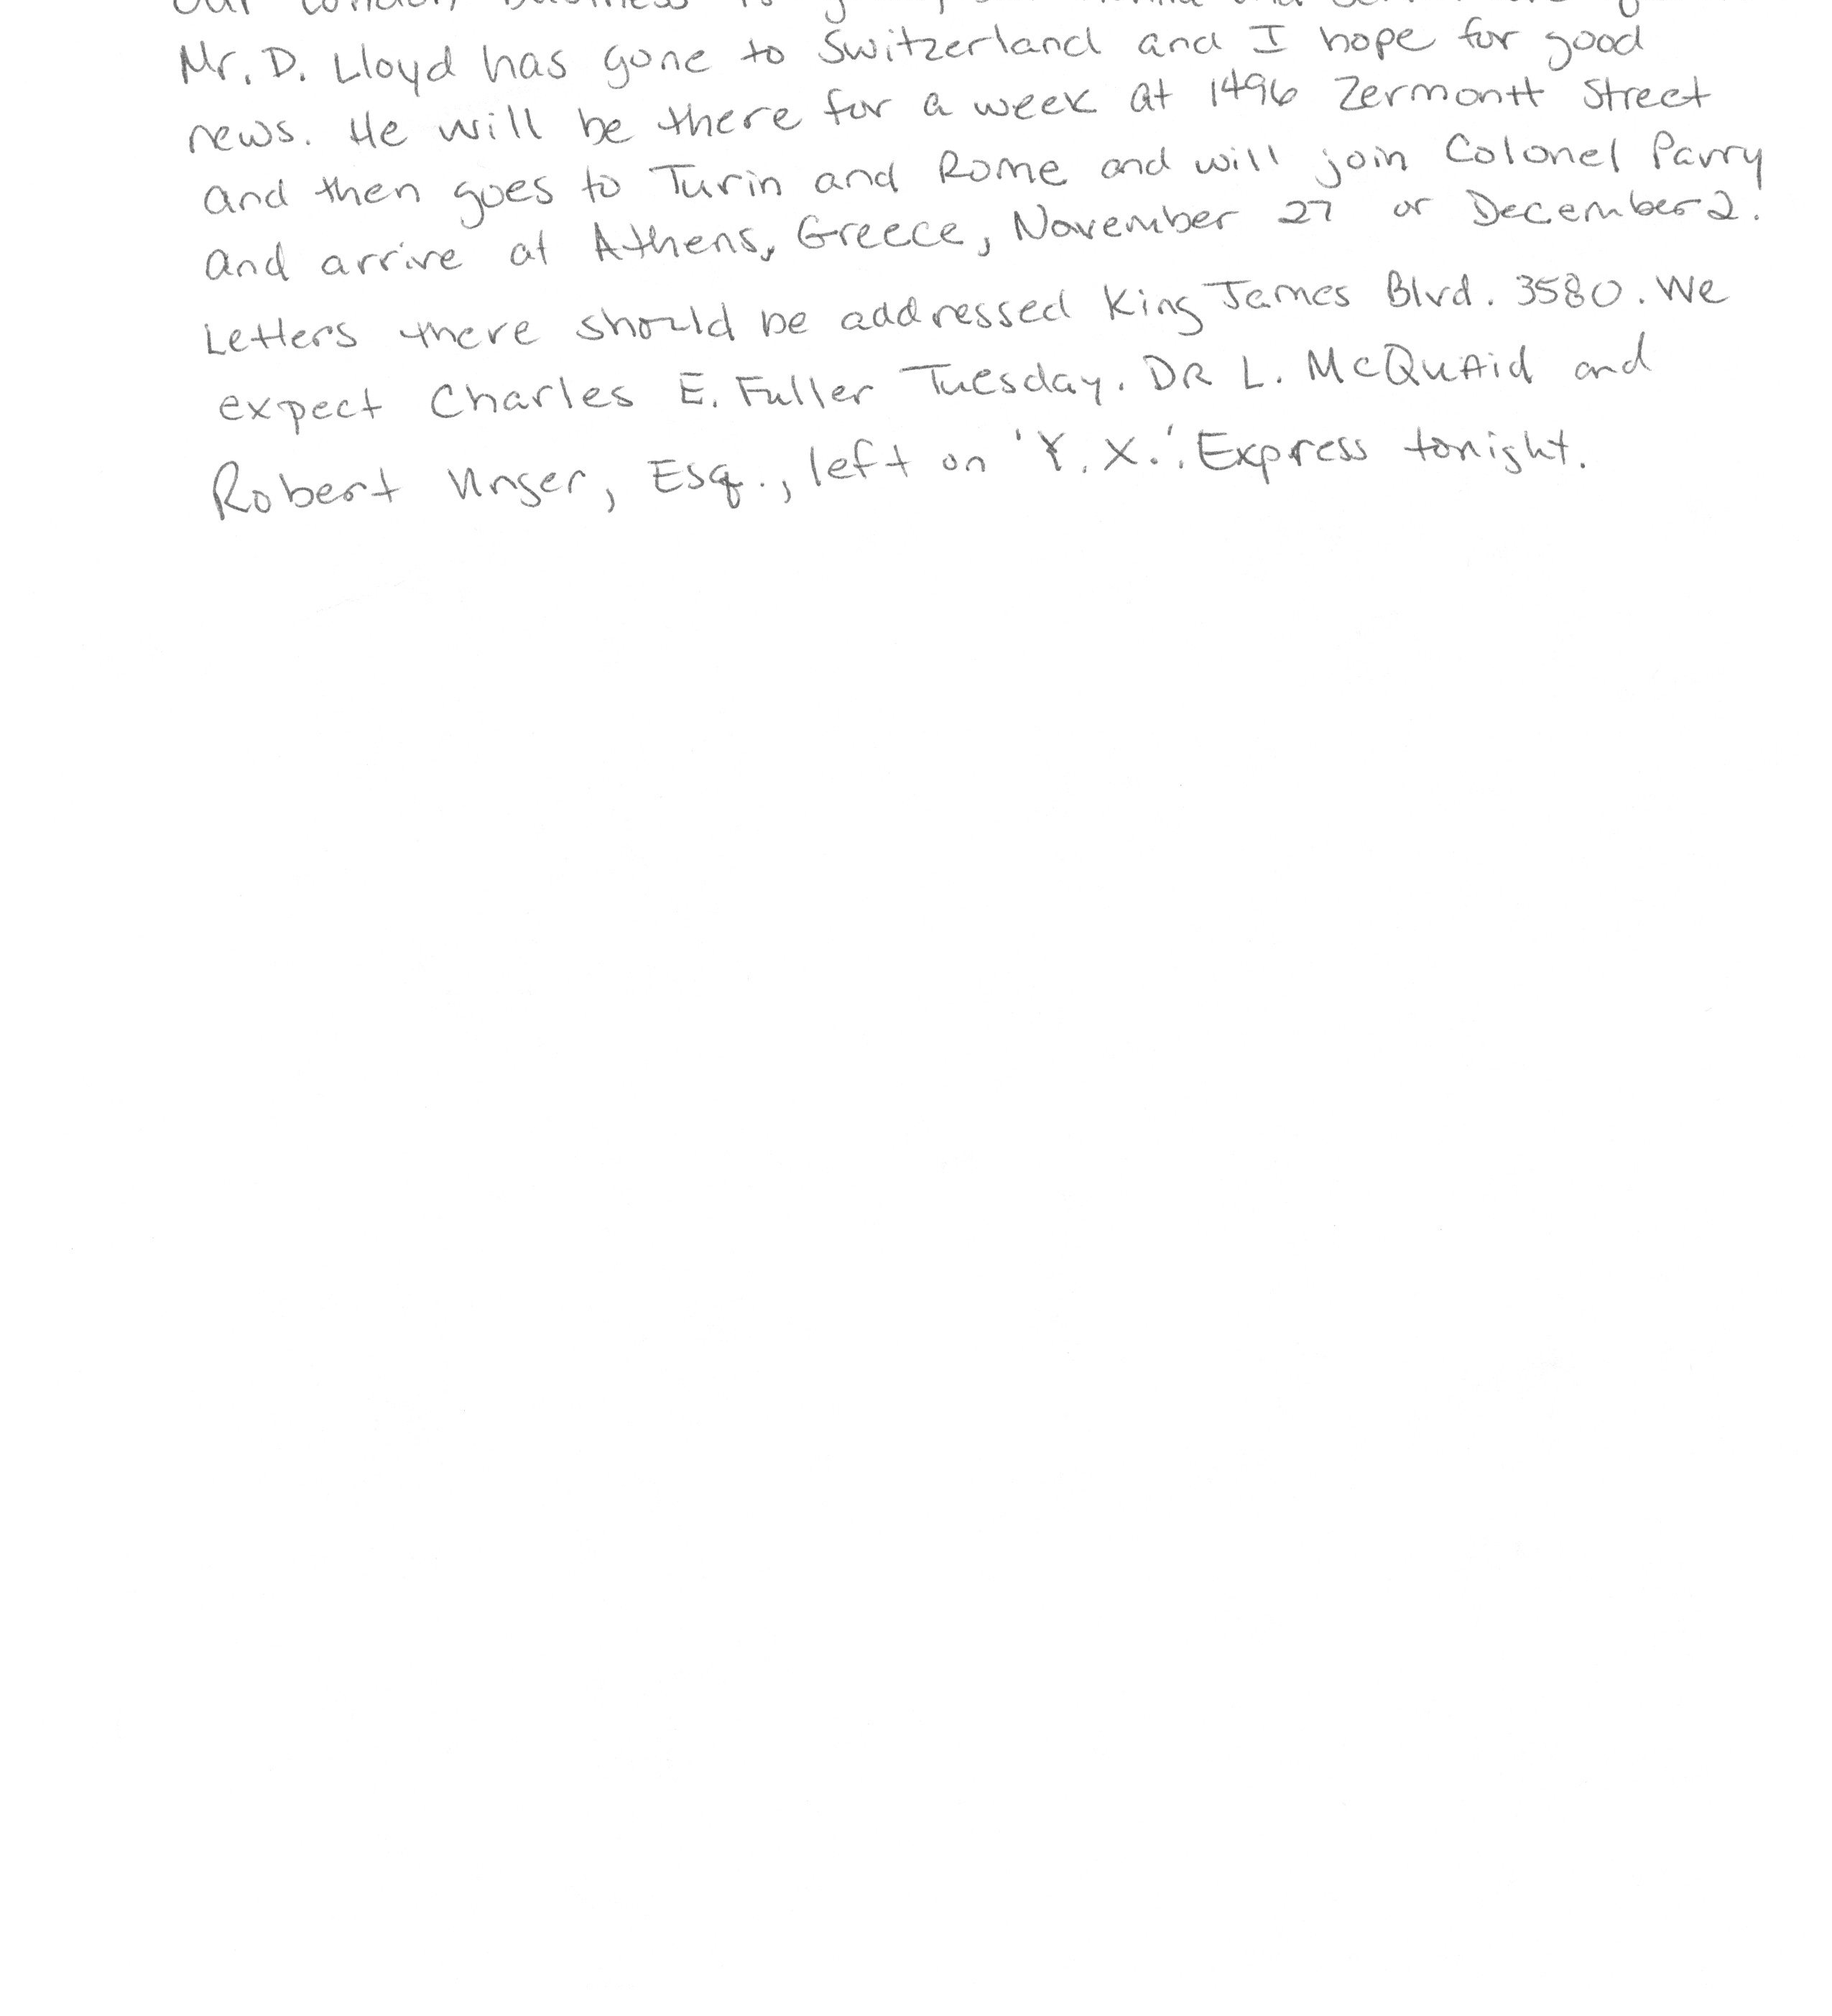 Mr. D. Lloyd has gone to Switzerland and I hope for good
news. He will be there for a week at 1496 Zermontt Street
and then goes to Turin and Rome and will join Colonel Parry
and arrive at Athens, Greece, November 27 or December 2.
Letters there should be addressed King James Blvd. 3580. We
expect Charles E. Fuller Tuesday. DR L. McQuaid and
Robert Unger, Esq., left on 'Y. X.' Express tonight.